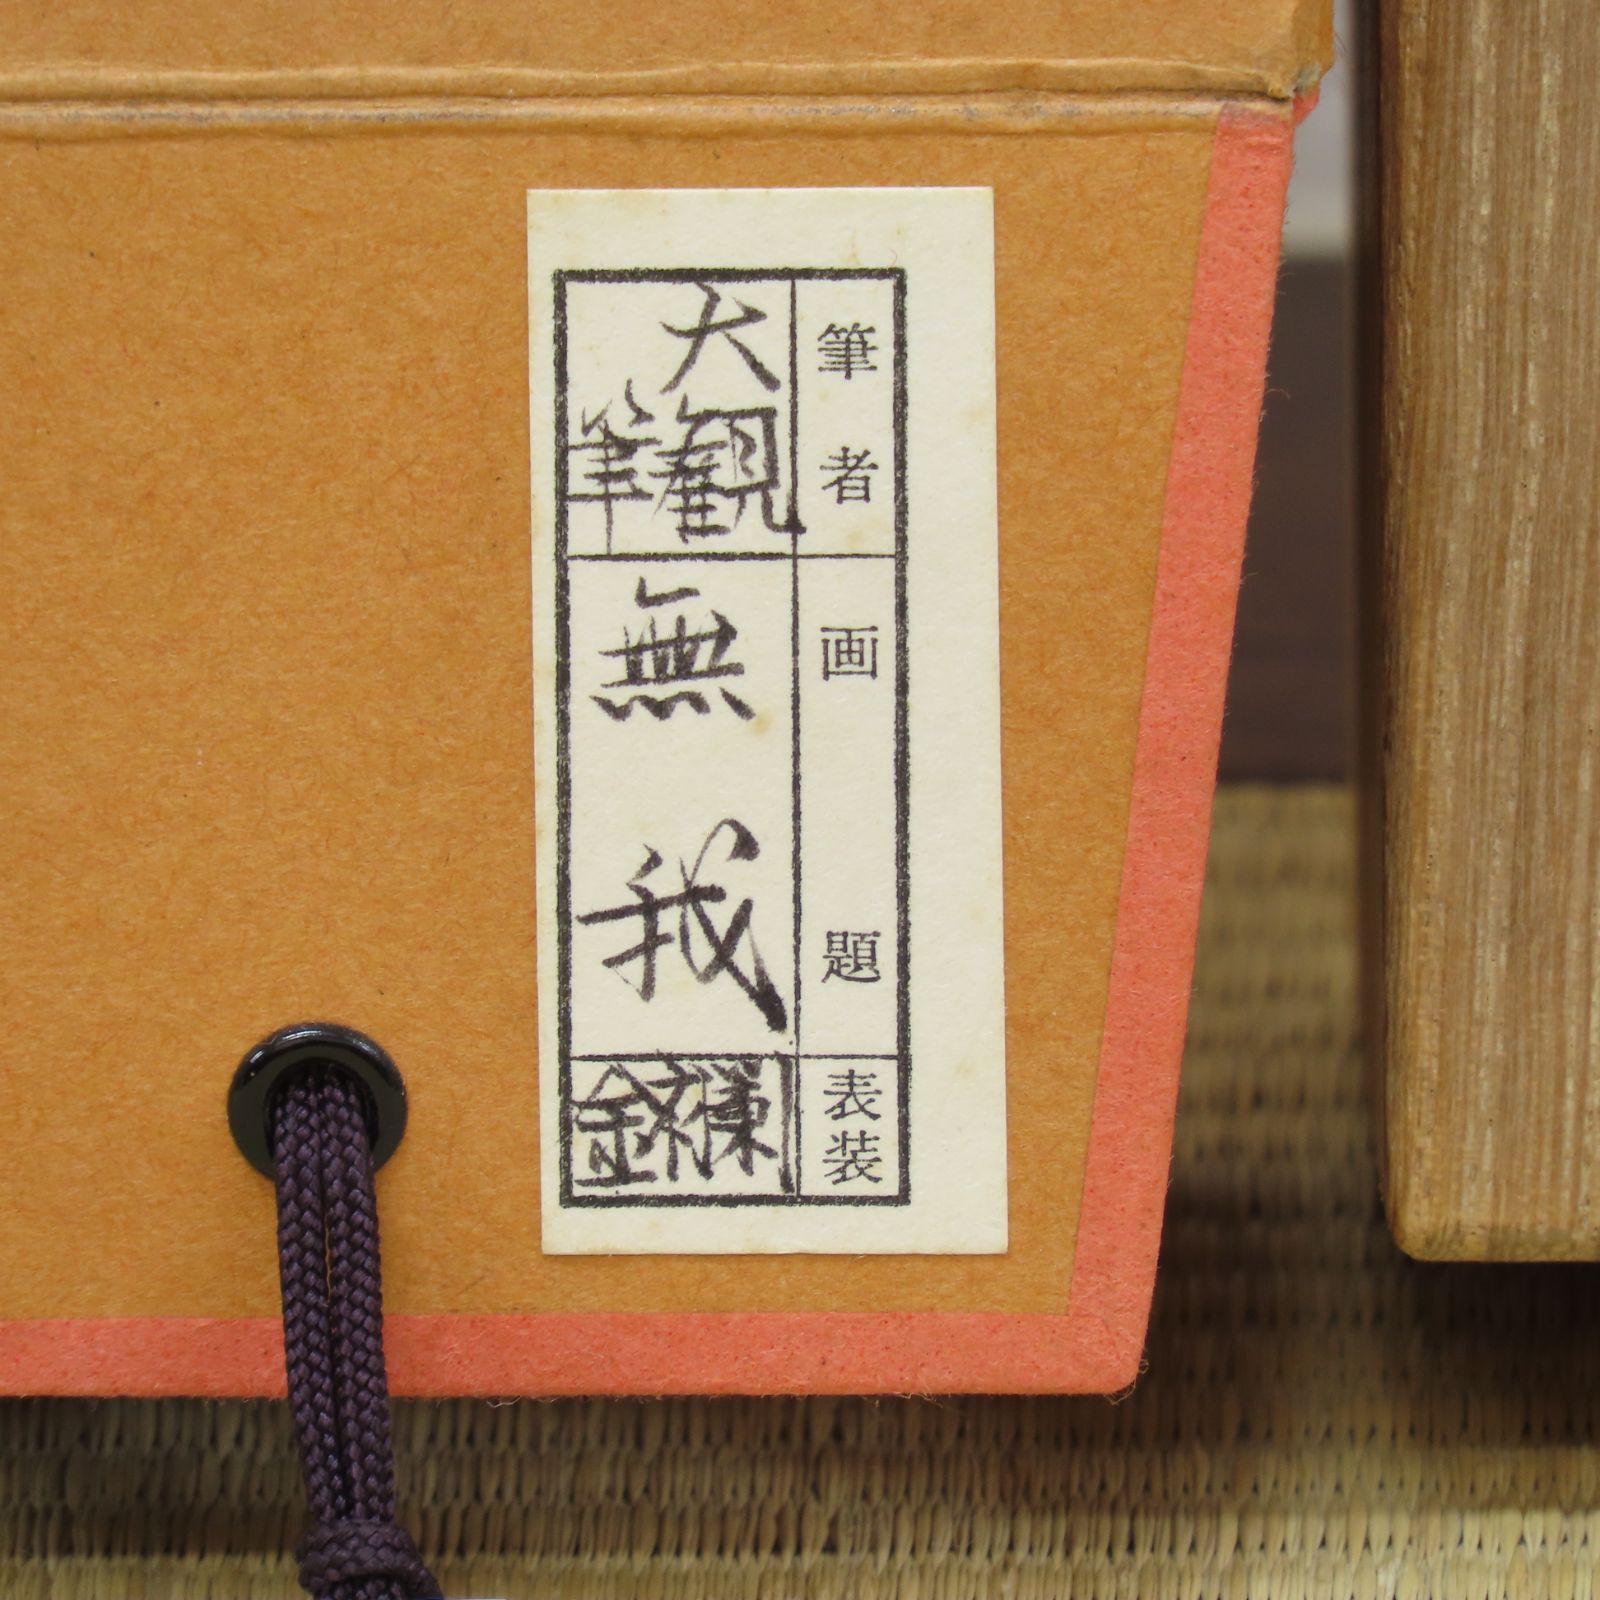 筆者
画題
表装
大観
筆
無我
金襴